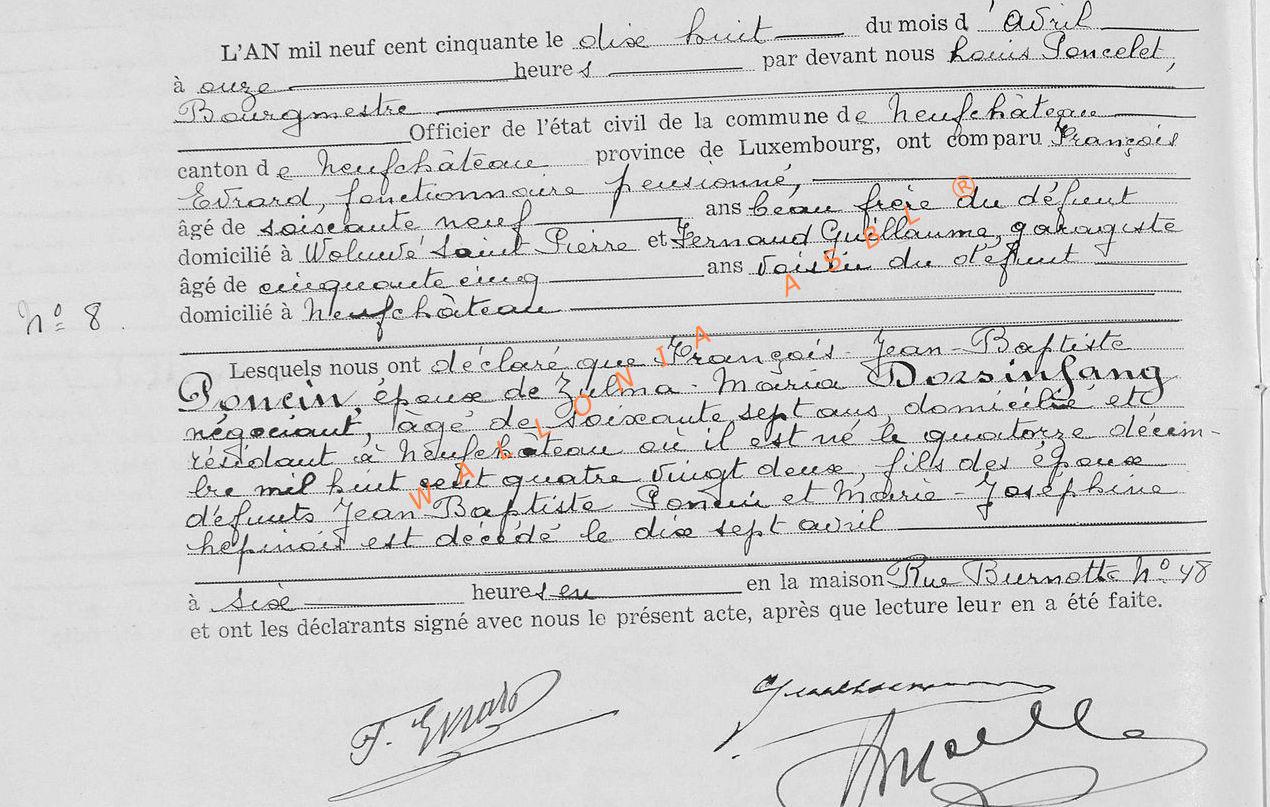 L'AN mil neuf cent cinquante le dix huit du mois d'Avril
à onze heures par devant nous Louis Poncelet,
Bourgmestre
Officier de l'état civil de la commune de Neufchâteau
canton de Neufchâteau province de Luxembourg, ont comparu François
Evrard, fonctionnaire pensionné,
âgé de soixante neuf ans beau frère du défunt
domicilié à Woluwé Saint Pierre et Fernand Guillaume, garagiste
âgé de cinquante cinq ans voisin du défunt
domicilié à Neufchâteau
N° 8.
Lesquels nous ont déclaré que François-Jean-Baptiste
Poncin, époux de Zulma-Maria Dorsinfang
négociant, âgé de soixante sept ans, domicilié et
résidant à Neufchâteau où il est né le quatorze décem-
bre mil huit cent quatre vingt deux, fils des époux
défunts Jean Baptiste Poncin et Marie-Joséphine
Hepinois est décédé le dix sept avril
à six heures en en la maison Rue Burnotte N° 48
et ont les déclarants signé avec nous le présent acte, après que lecture leur en a été faite.
F. Evrard
WALLONIA ASBL ®